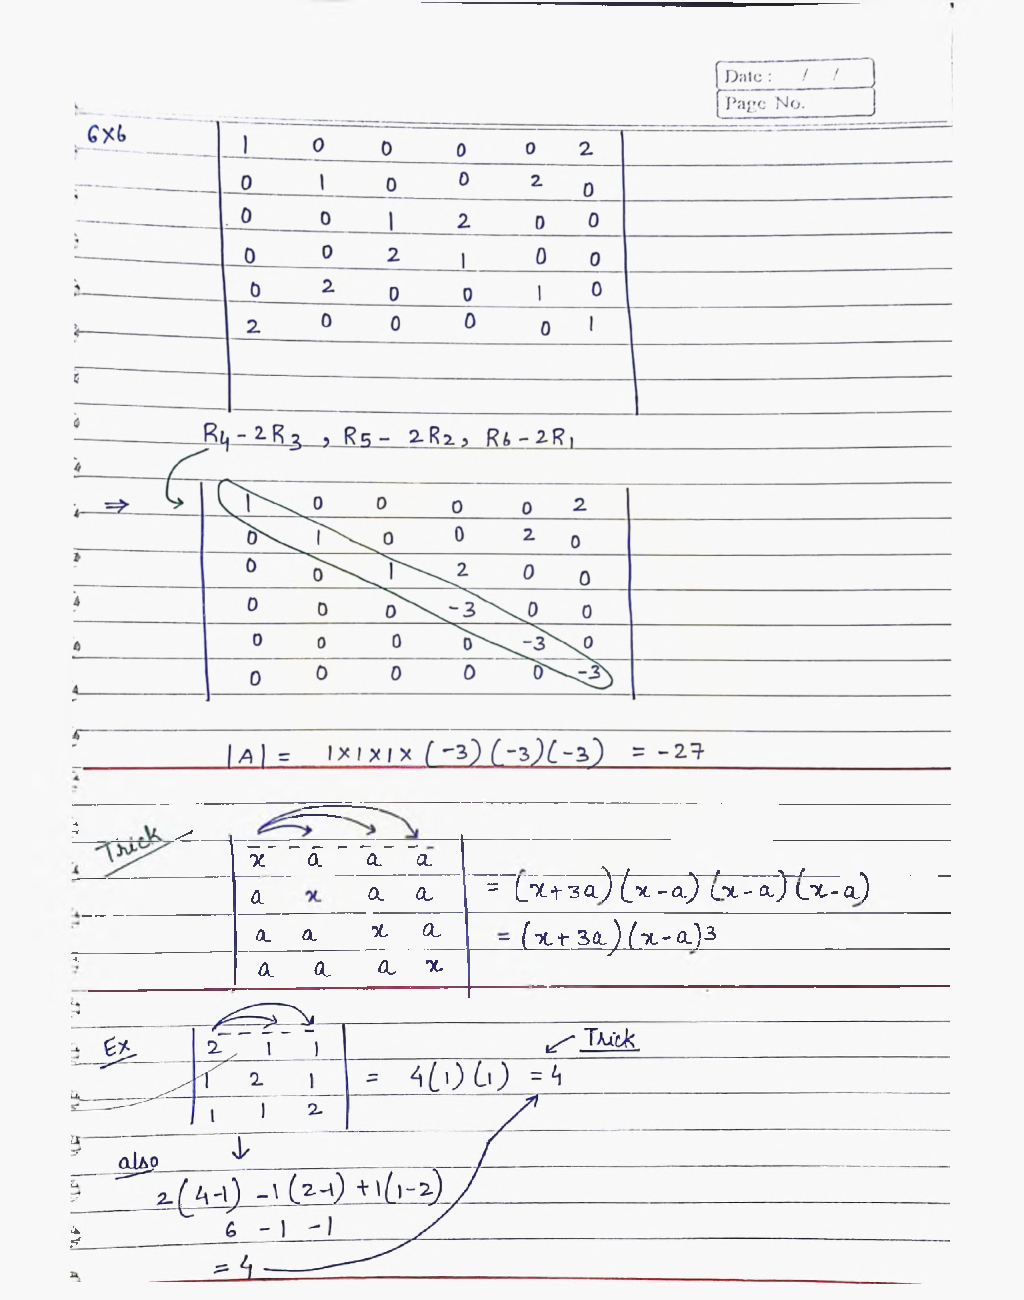 Date : / /
Page No.
6x6
1 0 0 0 0 2
0 1 0 0 2 0
0 0 1 2 0 0
0 0 2 1 0 0
0 2 0 0 1 0
2 0 0 0 0 1
R4 - 2R3 , R5 - 2R2, R6 - 2R1
⇒
1 0 0 0 0 2
0 1 0 0 2 0
0 0 1 2 0 0
0 0 0 -3 0 0
0 0 0 0 -3 0
0 0 0 0 0 -3
|A| = 1x1x1x (-3) (-3)(-3) = -27
Trick
x a a a
a x a a = (x+3a) (x-a) (x-a) (x-a)
a a x a = (x+3a) (x-a)3
a a a x
Trick
Ex 2 1 1
1 2 1 = 4(1) (1) = 4
1 1 2
also
2(4-1) -1(2-1) +1(1-2)
6 -1 -1
= 4